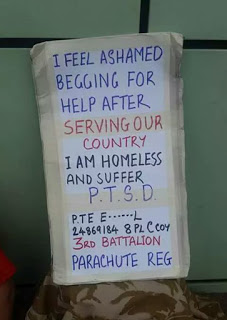 I FEEL ASHAMED
BEGGING FOR
HELP AFTER
SERVING OUR
COUNTRY
I AM HOMELESS
AND SUFFER
P.T.S.D.
P.TE E------L
24869184 8 PL C COY
3RD BATTALION
PARACHUTE REG